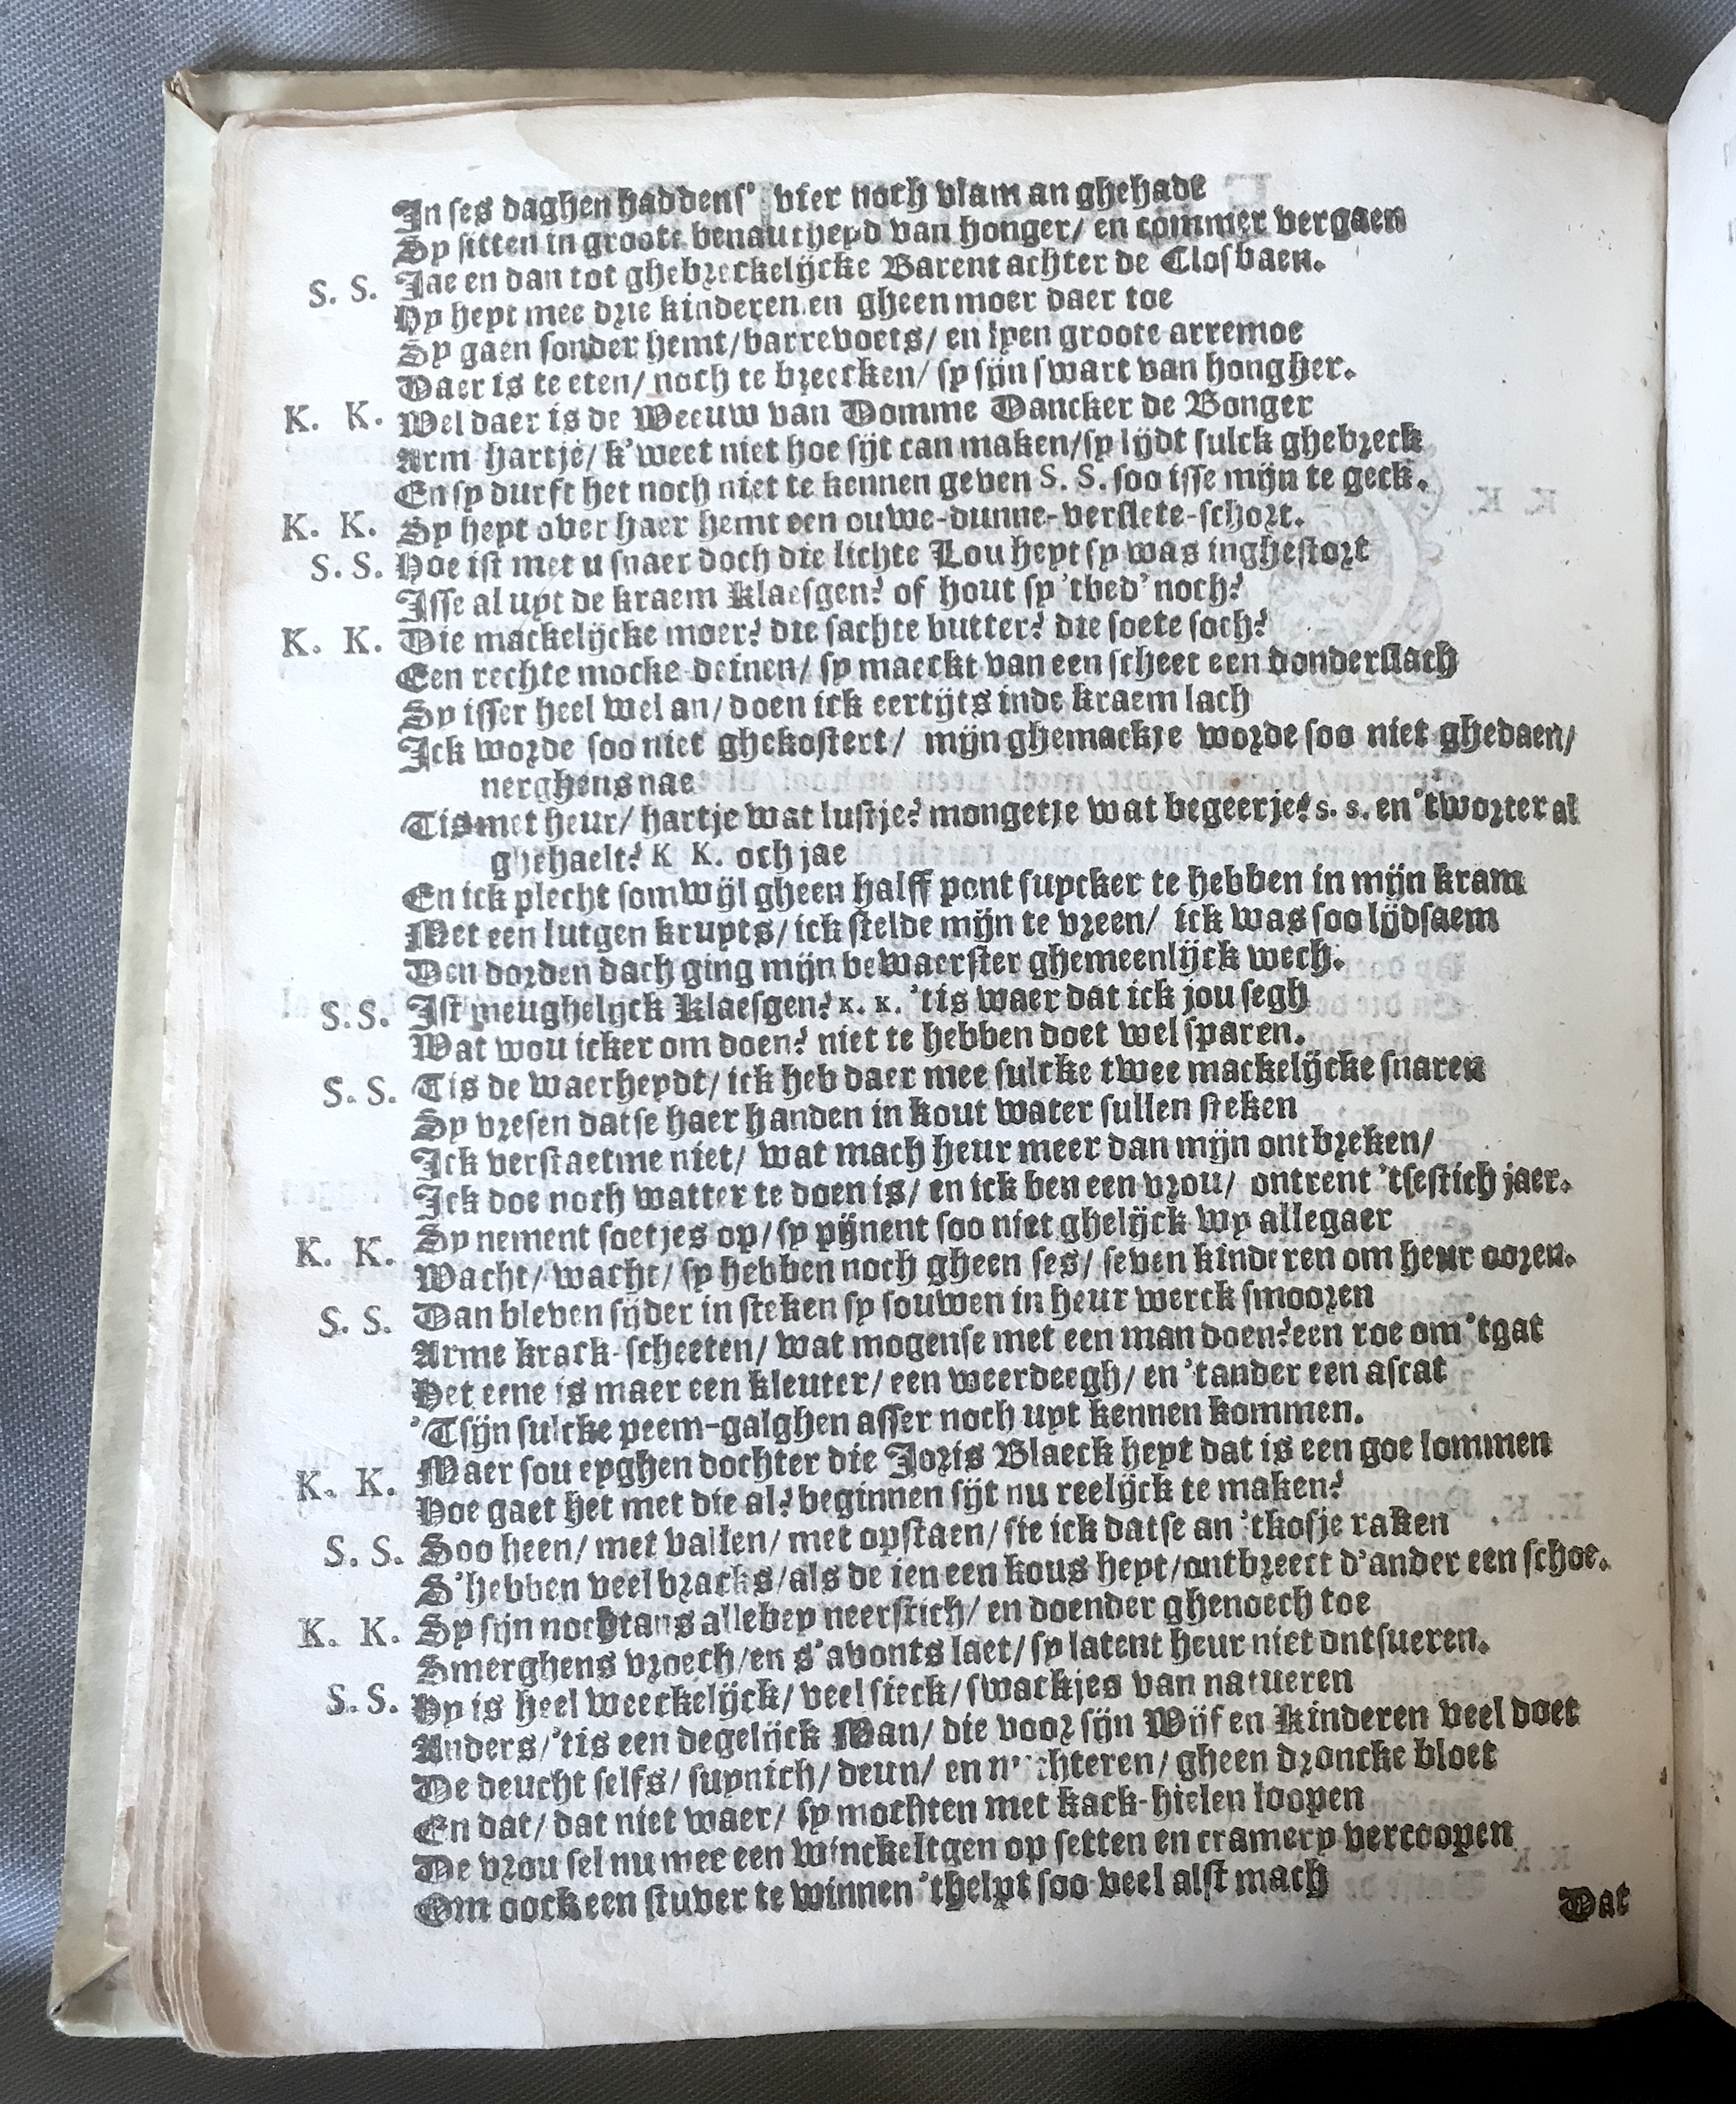 In ses daghen haddens' vier noch vlam an ghehade
Sy sitten in groote benautheyd van honger/ en commer vergaen
S. S. Jae en dan tot ghebreckelijcke Barent achter de Closbaen.
Hy heyt mee drie kinderen en gheen moer daer toe
Sy gaen sonder hemt/barrevoets/ en lyen groote arremoe
Daer is te eten/ noch te breecken/ sy sijn swart van hongher.
K. K. Wel daer is de Weeuw van Domme Dancker de Bonger
Arm hartje/ k'weet niet hoe sijt can maken/sy lijdt sulck ghebreck
En sy durft het noch niet te kennen geven S. S. soo isse mijn te geck.
K. K. Sy heyt over haer hemt een ouwe-dunne-verslete-schort.
S. S. Hoe ist met u snaer doch die lichte Lou heyt sy was inghestort
Isse al uyt de kraem Klaesgen? of hout sy 'tbed' noch?
K. K. Die mackelijcke moer? die sachte butter? die soete soch?
Een rechte mocke-deinen/ sy maeckt van een scheet een donderslach
Sy isser heel wel an/ doen ick eertijts inde kraem lach
Ick worde soo niet ghekostert/ mijn ghemackje worde soo niet ghedaen/
nerghens nae
Tis met heur/ hartje wat lustje? mongetje wat begeerje? s. s. en 'tworter al
ghehaelt? K K. och jae
En ick plecht somwijl gheen halff pont suycker te hebben in mijn kram
Met een lutgen kruyts/ ick stelde mijn te vreen/ ick was soo lijdsaem
Den dorden dach ging mijn bewaerster ghemeenlijck wech.
S. S. Ist meughelyck Klaesgen? K. K. 'tis waer dat ick jou segh
Wat wou icker om doen? niet te hebben doet wel sparen.
S. S. Tis de waerheydt/ ick heb daer mee sulcke twee mackelijcke snaren
Sy vresen datse haer handen in kout water sullen steken
Ick verstaetme niet/ wat mach heur meer dan mijn ontbreken/
Ick doe noch watter te doen is/ en ick ben een vrou/ ontrent 'tsestich jaer.
Sy nement soetjes op/ sy pijnent soo niet ghelijck wy allegaer
K. K. Wacht/ wacht/ sy hebben noch gheen ses/ seven kinderen om heur ooren.
S. S. Dan bleven sijder in steken sy souwen in heur werck smooren
Arme krack-scheeten/ wat mogense met een man doen? een roe om 'tgat
Het eene is maer een kleuter/ een weerdeegh/ en 'tander een ascat
'Tsijn sulcke peem-galghen asser noch uyt kennen kommen.
K. K. Maer sou eyghen dochter die Joris Blaeck heyt dat is een goe lommen
Hoe gaet het met die al? beginnen sijt nu reelijck te maken?
S. S. Soo heen/ met vallen/ met opstaen/ sie ick datse an 'tkosje raken
S'hebben veel bracks/als de ien een kous heyt/ontbreect d'ander een schoe.
K. K. Sy sijn nochtans allebey neerstich/ en doender ghenoech toe
Smerghens vroech/en s'avonts laet/ sy latent heur niet ontsueren.
S. S. Hy is heel weeckelijck/ veel sieck/ swackjes van natueren
Anders/'tis een degelijck Man/ die voor sijn Wijf en Kinderen veel doet
De deucht selfs/ suynich/ deun/ en n chteren/ gheen droncke bloet
En dat/ dat niet waer/ sy mochten met kack-hielen loopen
De vrou sel nu mee een winckeltgen op setten en cramery vercoopen
Om oock een stuver te winnen 'thelpt soo veel alst mach
Dat